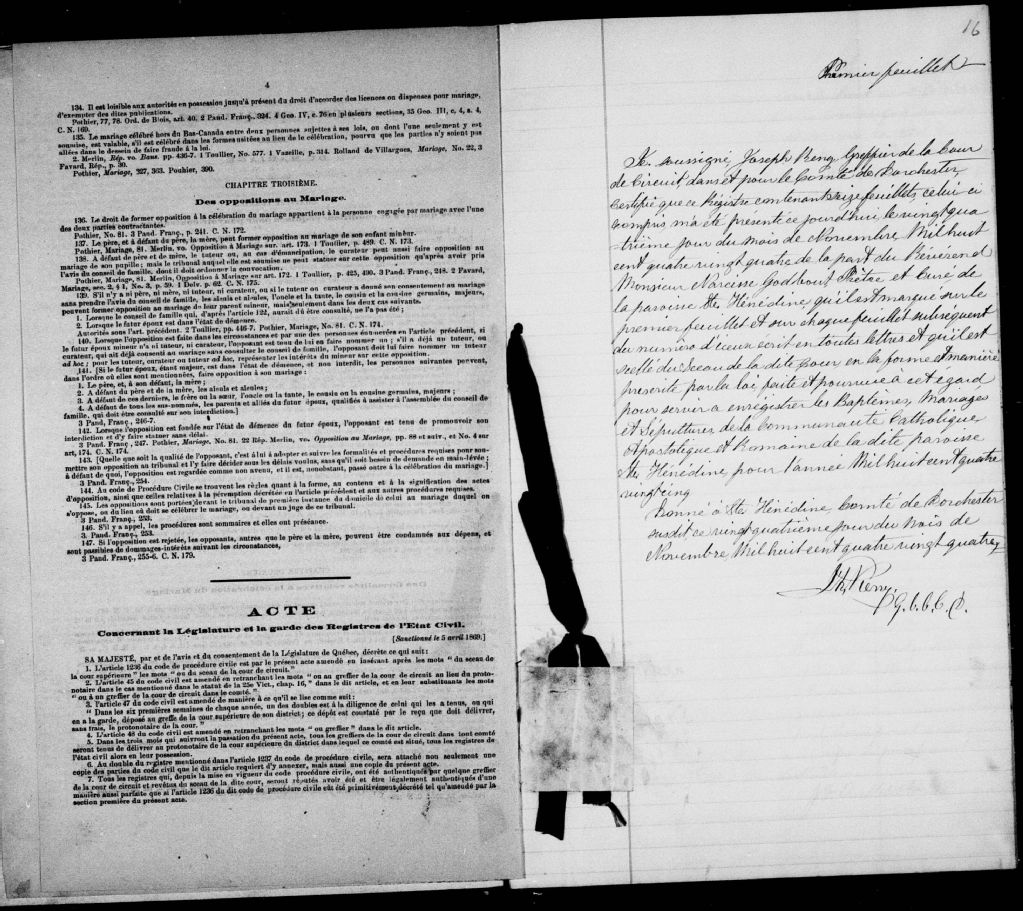 4
134. Il est loisible aux autorités en possession jusqu'à présent du droit d'accorder des licences ou dispenses pour mariage,
d'exempter des dites publications.
Pothier, 77, 78. Ord. de Blois, art. 40, 2 Pand. Franç., 324. 4 Geo. IV, c. 76 en plusieurs sections, 35 Geo. III, c, 4, s. 4,
C. N. 169.
135. Le mariage célébré hors du Bas-Canada entre deux personnes sujettes à ses lois, ou dont l'une seulement y est
soumise, est valable, s'il est célébré dans les formes usitées au lieu de la célébration, pourvu que les parties n'y soient pas
allées dans le dessein de faire fraude à la loi.
2. Merlin, Rép. vo. Bans. pp. 436-7. 1 Toullier, No. 577. 1 Vazeille, p. 314. Rolland de Villargues, Mariage, No. 22, 3
Favard, Rép., p. 30.
Pothier, Mariage, 327, 363. Pouhier, 390.
CHAPITRE TROISIÈME.
Des oppositions au Mariage.
136. Le droit de former opposition à la célébration du mariage appartient à la personne engagée par mariage avec l'une
des deux parties contractantes.
Pothier, No. 81. 3 Pand. Franç., p. 241. C. N. 172.
137. Le père, et à défaut du père, la mère, peut former opposition au mariage de son enfant mineur.
Pothier, Mariage, 81. Merlin, vo. Opposition à Mariage sur. art. 173. 1 Toullier, p. 489. C. N. 173.
138. A défaut de père et de mère, le tuteur ou, au cas d'émancipation, le curateur peut aussi faire opposition au
mariage de son pupille; mais le tribunal auquel elle est soumise ne peut statuer sur cette opposition qu'après avoir pris
l'avis du conseil de famille, dont il doit ordonner la convocation.
Pothier, Mariage, 81. Merlin, Opposition à Mariage sur art. 172. 1 Toullier, p. 425, 490. 3 Pand. Franç., 248. 2 Favard,
Mariage, sec. 2, § 1, No. 3, p. 59. 1 Delv. p. 62. C. N. 175.
139. S'il n'y a ni père, ni mère, ni tuteur, ni curateur, ou si le tuteur ou curateur a donné son consentement au mariage
sans prendre l'avis du conseil de famille, les aïeuls et aïeules, l'oncle et la tante, le cousin et la cousine germains, majeurs,
peuvent former opposition au mariage de leur parent mineur, mais seulement dans les deux cas suivants:
1. Lorsque le conseil de famille qui, d'après l'article 122, aurait dû être consulté, ne l'a pas été;
2. Lorsque le futur époux est dans l'état de démence.
Autorités sous l'art. précédent. 2 Toullier, pp. 446-7. Pothier, Mariage, No. 81. C. N. 174.
140. Lorsque l'opposition est faite dans les circonstances et par une des personnes énumérées en l'article précédent, si
le futur époux mineur n'a ni tuteur, ni curateur, l'opposant est tenu de lui en faire nommer un; s'il a déjà un tuteur, ou
curateur, qui ait déjà consenti au mariage sans consulter le conseil de famille, l'opposant doit lui faire nommer un tuteur
ad hoc; pour les tuteur, curateur ou tuteur ad hoc, représenter les intérêts du mineur sur cette opposition.
141. [Si le futur époux, étant majeur, est dans l'état de démence, et non interdit, les personnes suivantes peuvent,
dans l'ordre où elles sont mentionnées, faire opposition à son mariage:
1. Le père, et, à son défaut, la mère;
2. A défaut du père et de la mère, les aïeuls et aïeules;
3. A défaut de ces derniers, le frère ou la sœur, l'oncle ou la tante, le cousin ou la cousine germains, majeurs;
4. A défaut de tous les sus-nommés, les parents et alliés du futur époux, qualifiés à assister à l'assemblée du conseil de
famille, qui doit être consulté sur son interdiction.]
3 Pand, Franç., 246-7.
142. Lorsque l'opposition est fondée sur l'état de démence du futur époux, l'opposant est tenu de promouvoir son
interdiction et d'y faire statuer sans délai.
3 Pand. Franç., 247. Pothier, Mariage, No. 81. 22 Rép. Merlin, vo. Opposition au Mariage, pp. 88 et suiv., et No. 4 sur
art, 174. C. N. 174.
143. [Quelque soit la qualité de l'opposant, c'est à lui à adopter et suivre les formalités et procédures requises pour sou-
mettre son opposition au tribunal et l'y faire décider sous les délais voulus, sans qu'il soit besoin de demande en main-levée;
à défaut de quoi, l'opposition est regardée comme non avenu, et il est, nonobstant, passé outre à la célébration du mariage.]
3 Pand. Franç., 254.
144. Au code de Procédure Civile se trouvent les règles quant à la forme, au contenu et à la signification des actes
d'opposition, ainsi que celles relatives à la péremption décrétée en l'article précédent et aux autres procédures requises.
145. Les oppositions sont portées devant le tribunal de première instance du domicile de celui au mariage duquel on
s'oppose, ou du lieu où doit se célébrer le mariage, ou devant un juge de ce tribunal.
3 Pand. Franç., 253.
146. S'il y a appel, les procédures sont sommaires et elles ont préséance.
3. Pand. Franç., 253.
147. Si l'opposition est rejetée, les opposants, autres que le père et la mère, peuvent être condamnés aux dépens, et
sont passibles de dommages-intérêts suivant les circonstances,
3 Pand. Franç., 255-6. C. N. 179.
ACTE
Concernant la Législature et la garde des Registres de l'Etat Civil.
[Sanctionné le 5 avril 1869.]
SA MAJESTÉ, par et de l'avis et du consentement de la Législature de Québec, décrète ce qui suit:
1. L'article 1236 du code de procédure civile est par le présent acte amendé en insérant après les mots "du sceau de
la cour supérieure" les mots "ou du sceau de la cour de circuit."
2. L'article 45 du code civil est amendé en retranchant les mots "ou au greffier de la cour de circuit au lieu du proto-
notaire dans le cas mentionné dans le statut de la 25e Vict., chap. 16," dans le dit article, et en leur substituants les mots
"ou à un greffier de la cour de circuit dans le comté."
3. l'article 47 du code civil est amendé de manière à ce qu'il se lise comme suit:
"Dans les six premières semaines de chaque année, un des doubles est à la diligence de celui qui les a tenus, ou qui
en a la garde, déposé au greffe de la cour supérieure de son district; ce dépôt est constaté par le reçu que doit délivrer,
sans frais, le protonotaire de la cour."
4. L'article 48 du code civil est amendé en retranchant les mots "ou greffier" dans le dit article.
5. Dans les trois mois qui suivront la passation du présent acte, tous les greffiers de la cour de circuit dans tout comté
seront tenus de délivrer au protonotaire de la cour supérieure du district dans lequel ce comté est situé, tous les registres de
l'état civil alors en leur possession.
6. Au double du registre mentionné dans l'article 1237 du code de procédure civile, sera attaché non seulement une
copie des parties du code civil que le dit article requiert d'y annexer, mais aussi une copie du présent acte.
7. Tous les registres qui, depuis la mise en vigueur du code procédure civile, ont été authentiqués par quelque greffier
de la cour de circuit et revêtus du sceau de la dite cour, seront réputés avoir été et être légalement authentiqués d'une
manière aussi parfaite que si l'article 1236 du dit code de procédure civile eût été primitivement, décrété tel qu'amendé par la
section première du présent acte.
16
Premier feuillet
Je, soussigné, Joseph Remy Greffier de la Cour
de Circuit, dans et pour le Comté de Dorchester
certifie que ce Régistre contenant seize feuillets, celui ci
compris m'a été présenté ce jourd'hui le vingt qua
trième jour du mois de Novembre Mil huit
cent quatre vingt quatre de la part du Révérend
Monsieur Narcisse Godbout Prêtre et Curé de
la paroisse Ste Hénédine qu'il est marqué sur le
premier feuillet et sur chaque feuillet subséquent
du numéro d'iceux écrit en toutes lettres et qu'il est
scellé du Sceau de la dite Cour en la forme et manière
prescrite par la loi faite et pourvue à cet égard
pour servir a enrégistrer les Baptêmes, Mariages
et Sépultures de la Communauté Catholique
Apostolique et Romaine de la dite paroisse
Ste Hénédine pour l'année Mil huit cent quatre
vingt cinq
Donné à Ste Hénédine, Comté de Dorchester
susdit ce vingt quatrième jour du mois de
Novembre, Mil huit cent quatre vingt quatre,
G. C. C. C. D.